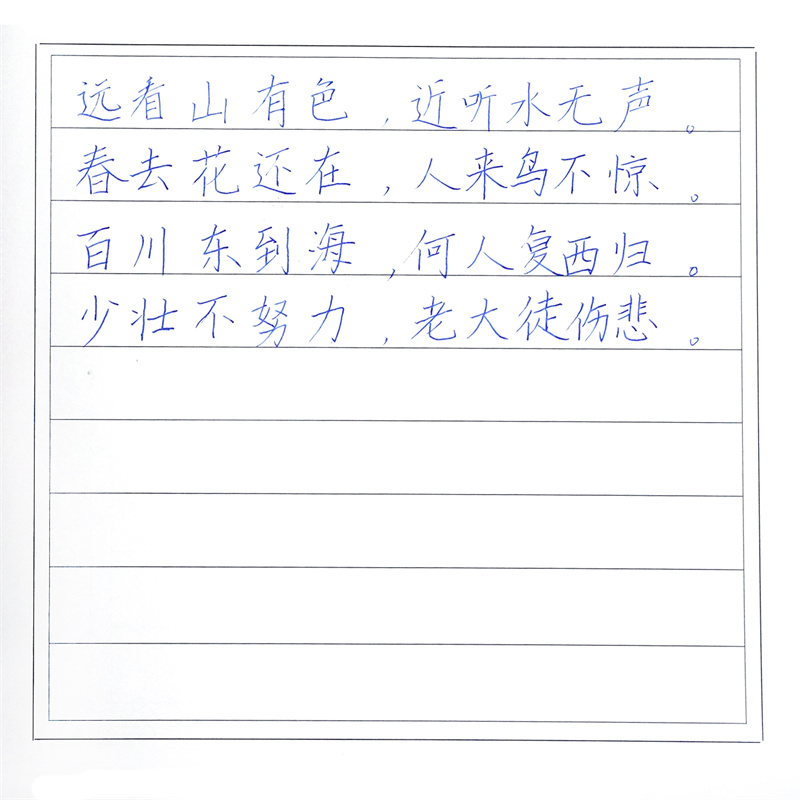 远看山有色，近听水无声。
春去花还在，人来鸟不惊。
百川东到海，何人复西归。
少壮不努力，老大徒伤悲。